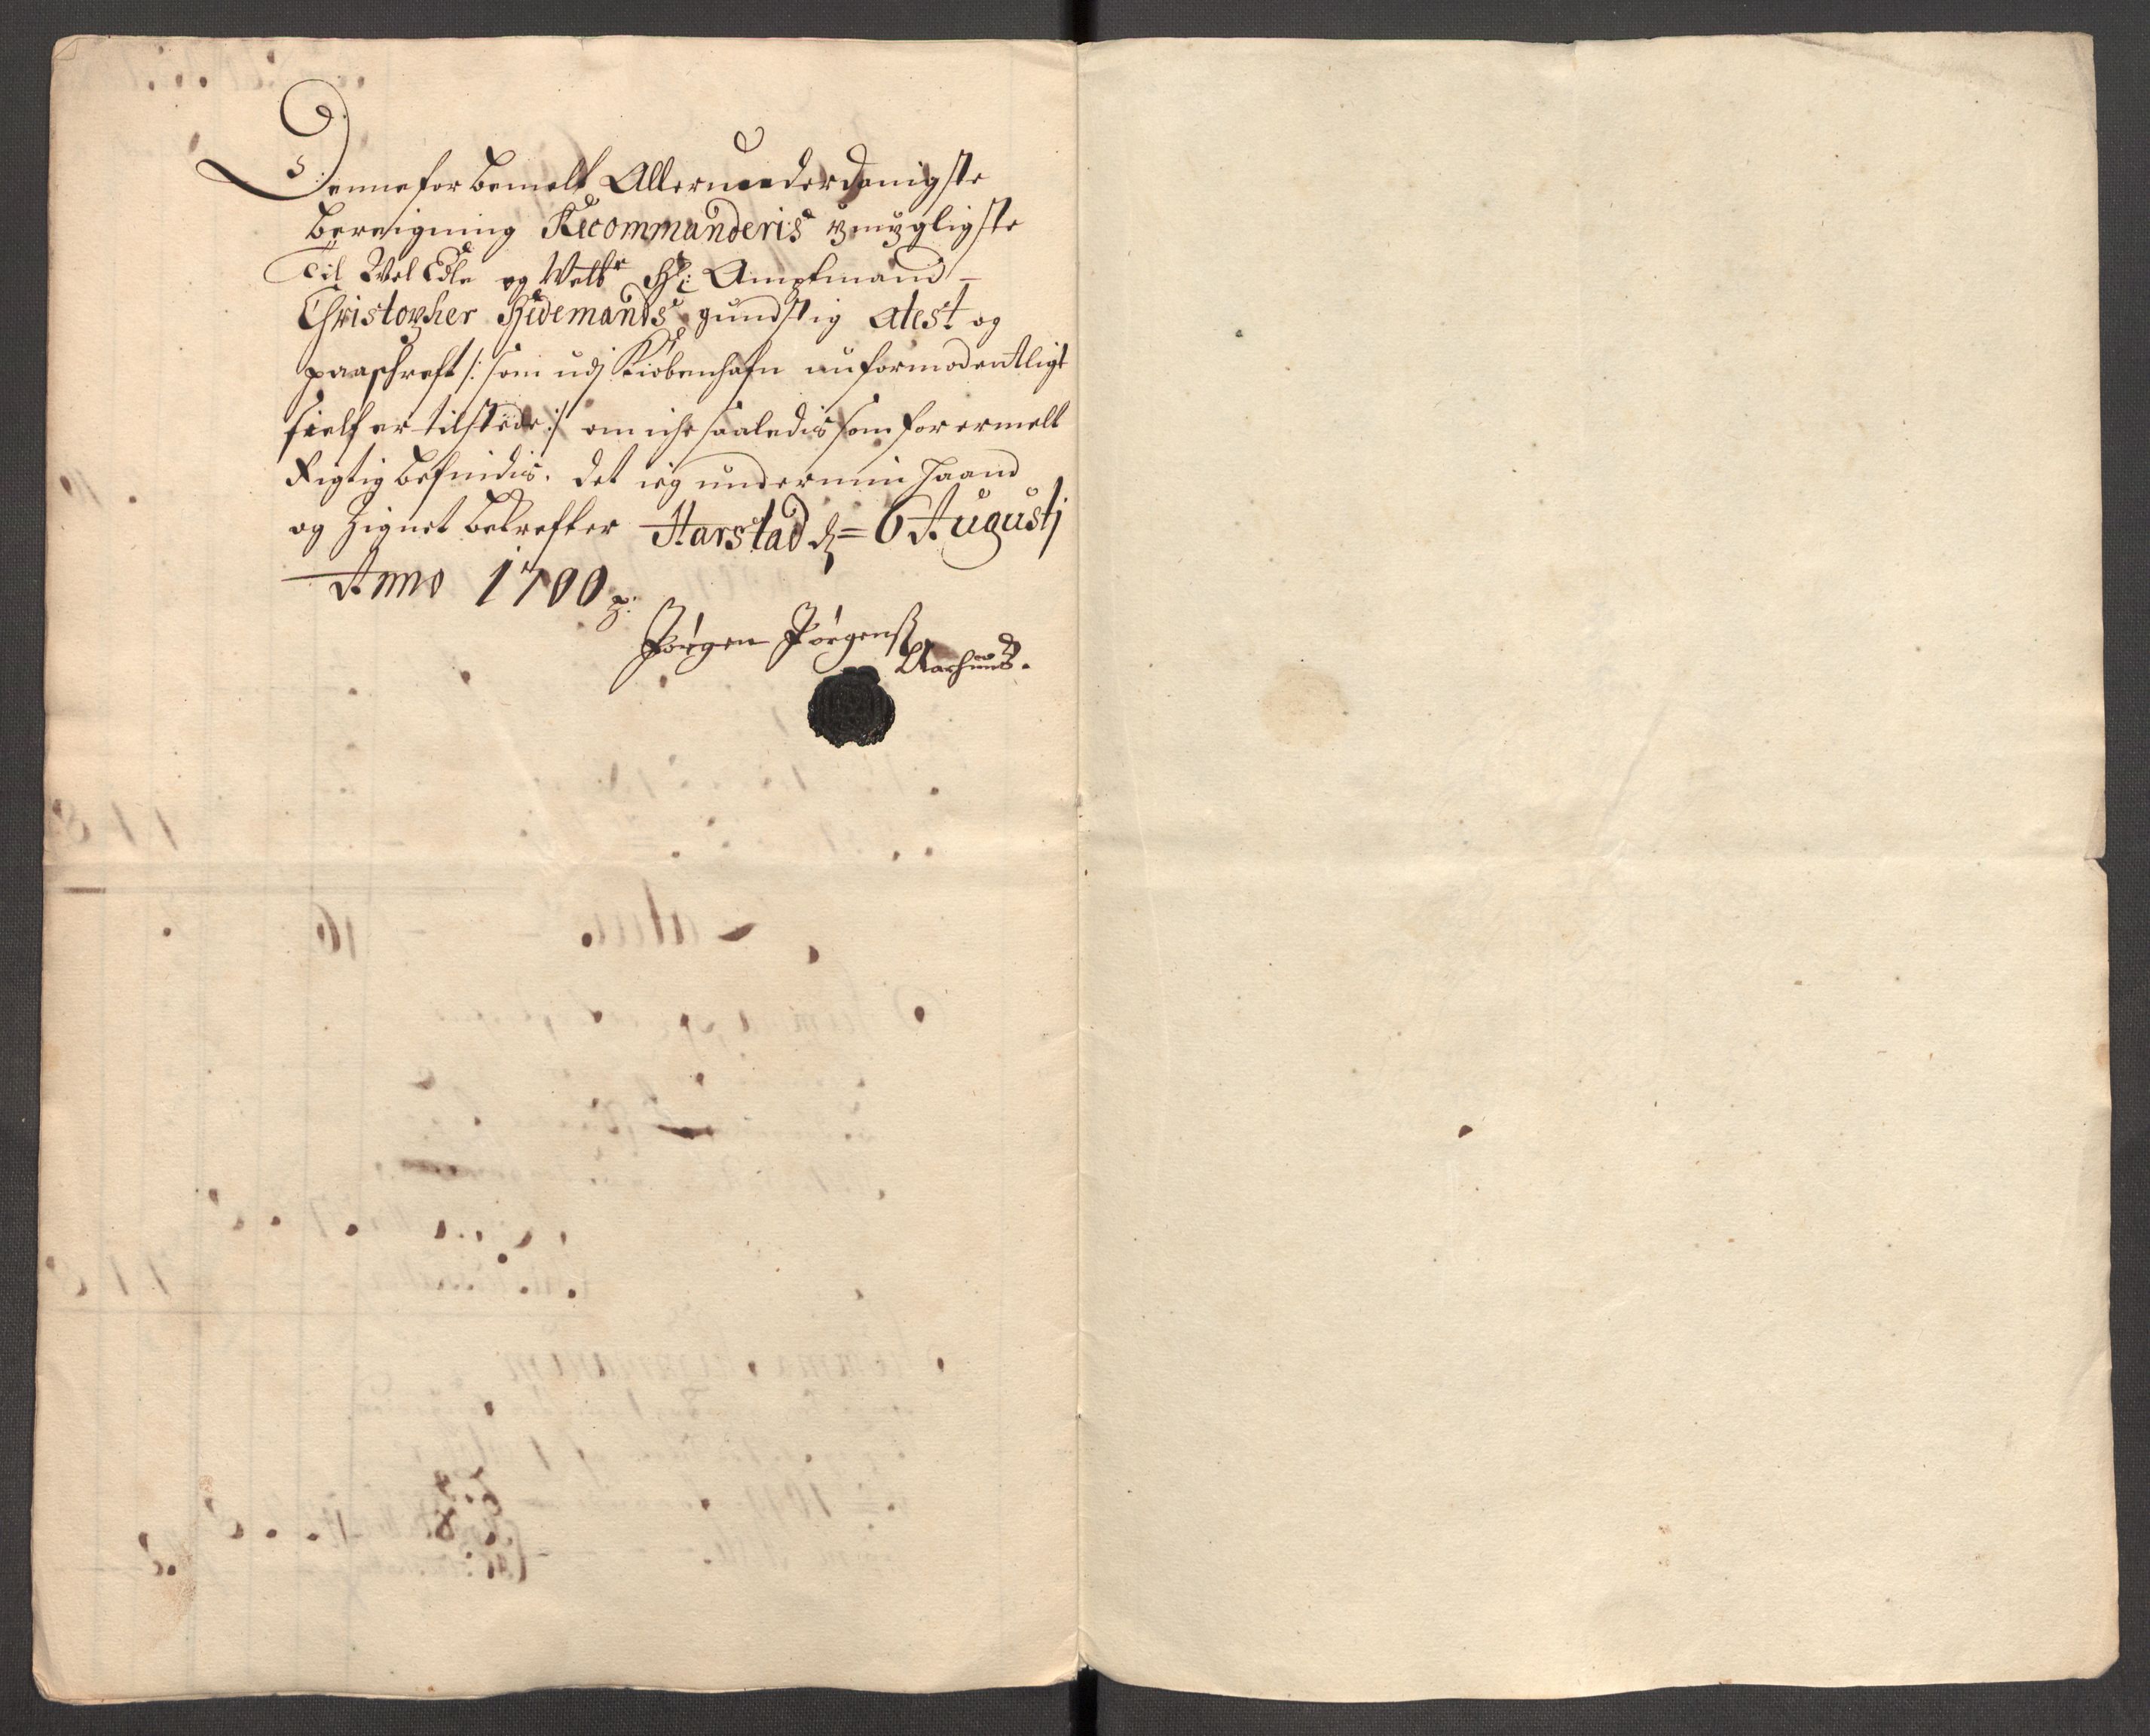 Denne for bemelt Allerunderdanigste
beregning Recommanderis ÿmÿgligste
Til Wel Edle og Welbr Hr: Amptmand
Christopher Hidemands gundstig atest og
paaschreft /: som udj Kiobenhafn nu formodentligt
sielf er tilstede :/ om iche saaledis som for ermelt
Rigtig befindis. det ieg under min Haand
og Zignet bekrefter Harstad d= 6 Augustj
Anno 1700
Jørgen Jørgenß
Aarhuus.